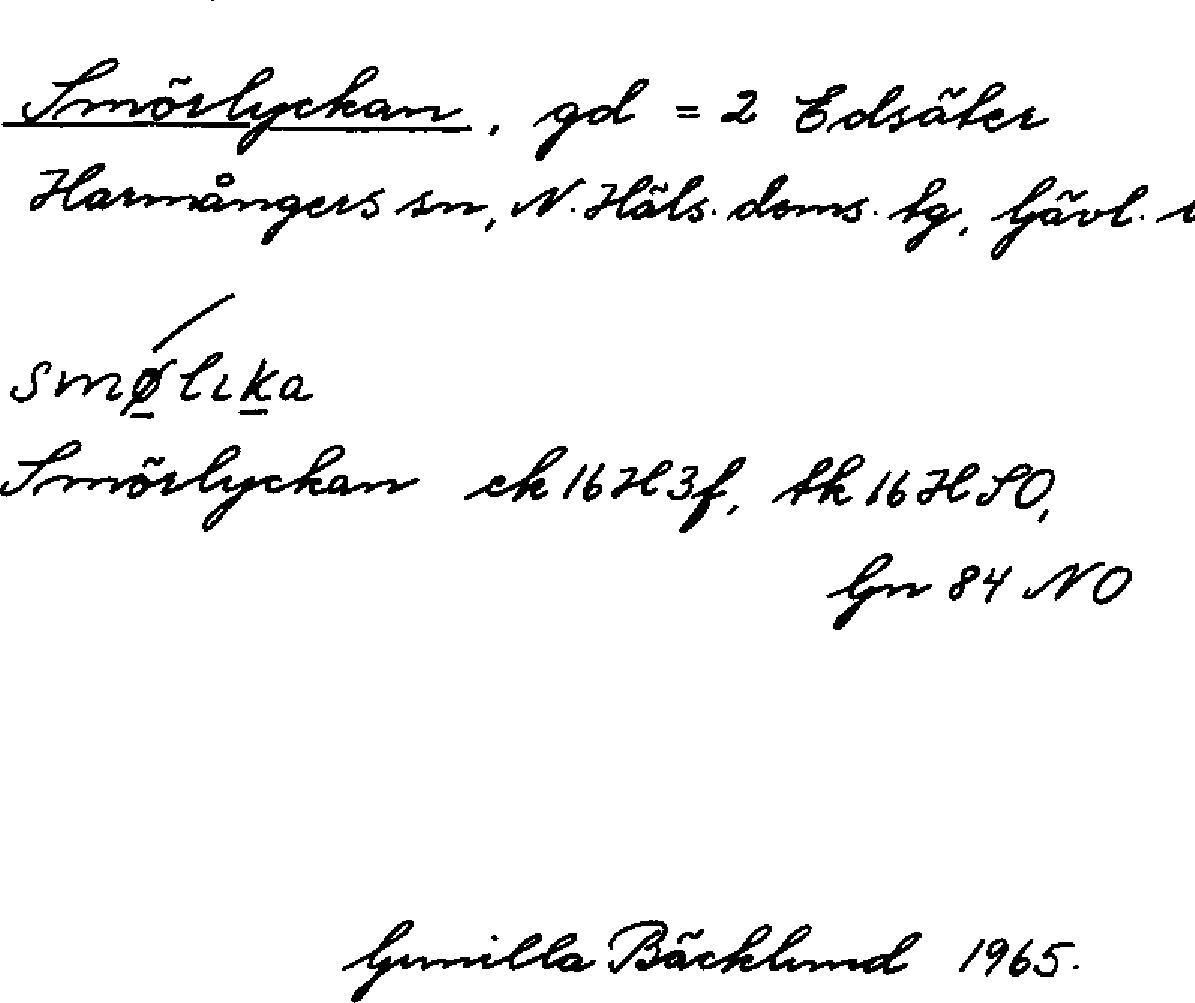 Smörlyckan, gd = 2 Edsäter
Harmångers sn, N. Häls. doms. tg. Gävl.
smø̱lıḵa
Smörlyckan ek 16H3f, tk 16H SO,
Gn 84 NO
Gunilla Bäcklund 1965.